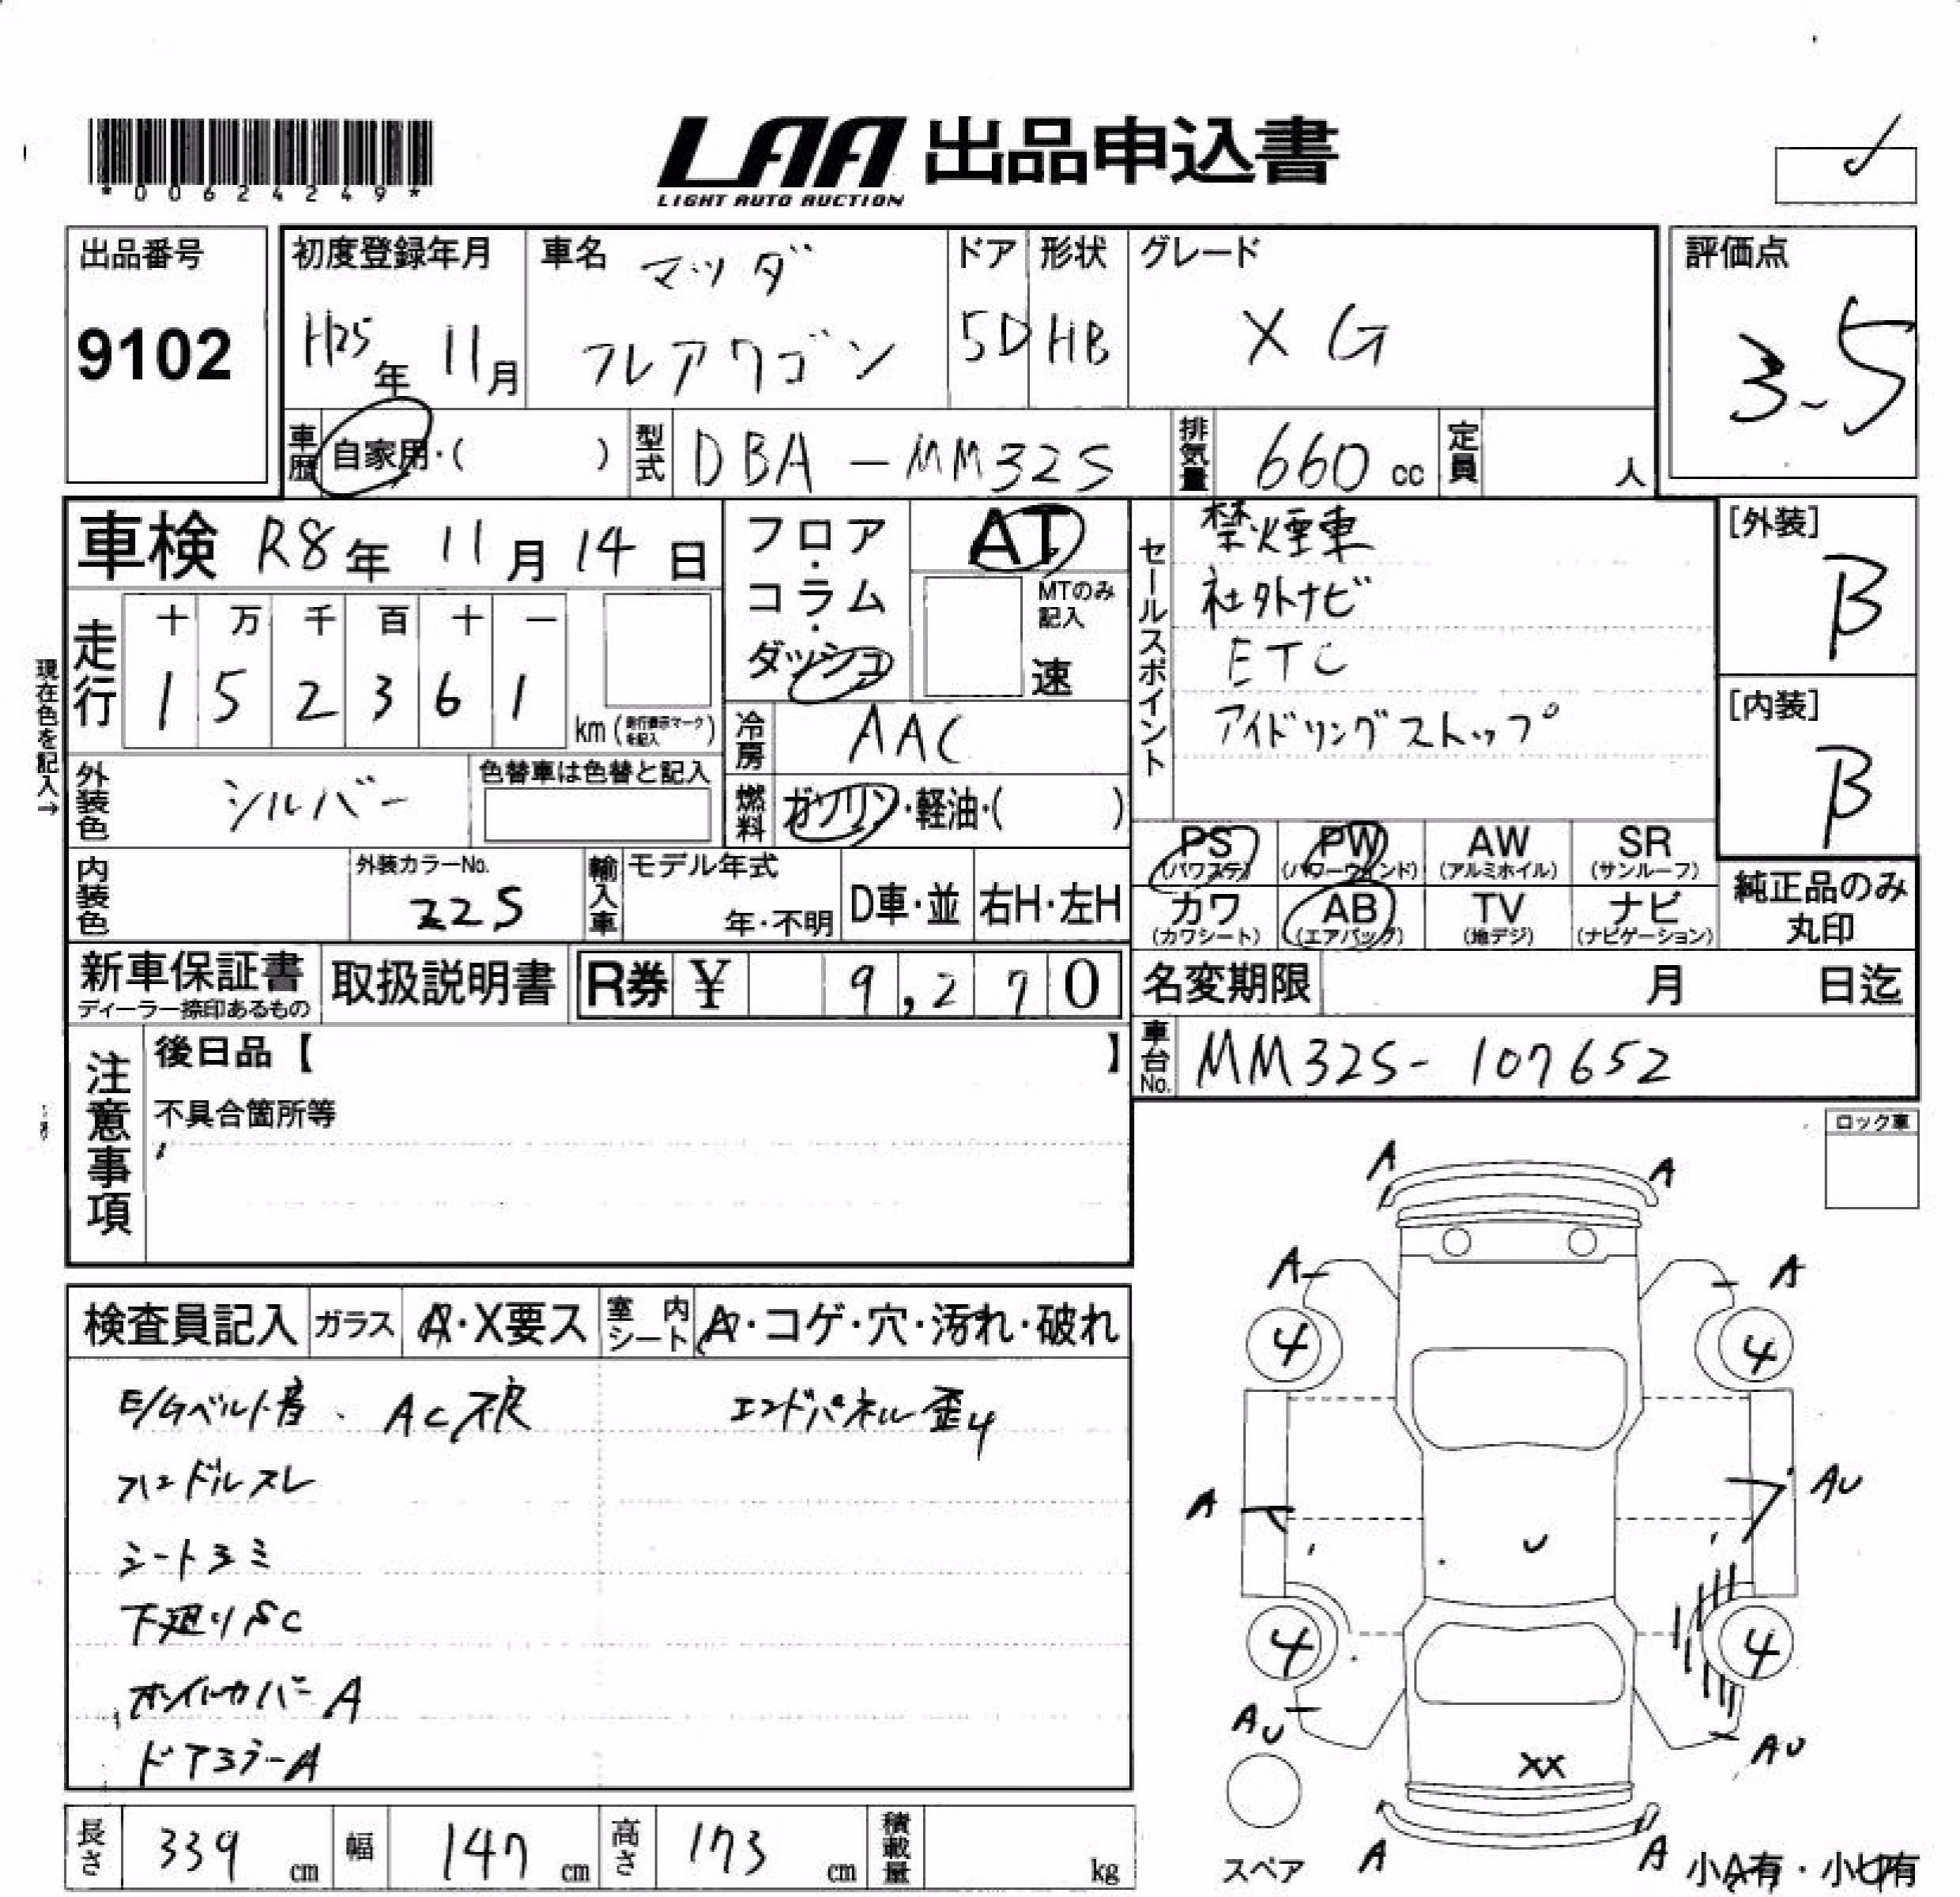 *00624249*
LAA 出品申込書
LIGHT AUTO AUCTION
出品番号
9102
初度登録年月
H25年 11月
車名 マツダ
フレアワゴン
ドア
5D
形状
HB
グレード
XG
評価点
3.5
車歴 自家用・( )
型式 DBA-MM32S
排気量 660 cc
定員 人
車検 R8年 11月 14日
フロア・コラム・ダッシュ
AT
MTのみ記入
速
セールスポイント
禁煙車
社外ナビ
ETC
アイドリングストップ
[外装]
B
[内装]
B
現在色を記入→
走行
十 万 千 百 十 一
1 5 2 3 6 1
km (走行表示マークを記入)
冷房 AAC
外装色 シルバー
色替車は色替と記入
燃料 ガソリン・軽油・( )
内装色
外装カラーNo.
Z2S
輸入車
モデル年式
年・不明
D車・並
右H・左H
PS (パワステ)
PW (パワーウィンド)
AW (アルミホイル)
SR (サンルーフ)
カワ (カワシート)
AB (エアバッグ)
TV (地デジ)
ナビ (ナビゲーション)
純正品のみ丸印
新車保証書
ディーラー捺印あるもの
取扱説明書
R券 ¥ 9,270
名変期限 月 日迄
注意事項
後日品【 】
不具合箇所等
車台No. MM32S-107652
ロック車
検査員記入
ガラス A・X要ス
室内シート A・コゲ・穴・汚れ・破れ
E/Gベルト音、AC不良
エンドパネル歪4
ハンドルスレ
シートシミ
下廻りSC
ホイルカバーA
ドアミラーA
A A
A A
4 4
A AU
U
4 4
AU AU
XX
A A
スペア
小A有・小U有
長さ 339 cm
幅 147 cm
高さ 173 cm
積載量 kg